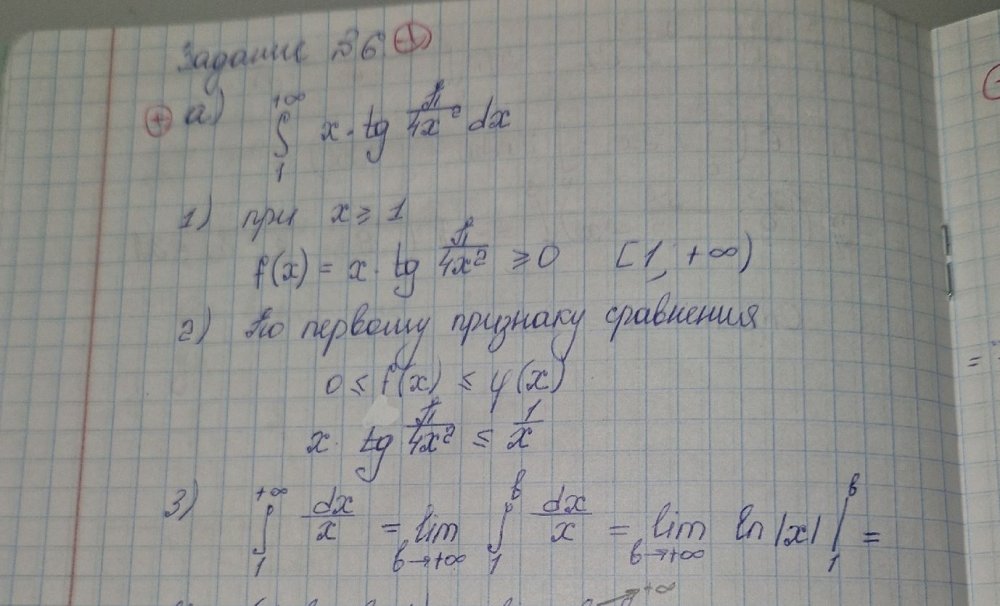 Задание №6 (+)
(+) а) ∫₁^{+∞} x · tg π/4x² dx
1) при x ≥ 1
f(x) = x · tg π/4x² ≥ 0 [1, +∞)
2) По первому признаку сравнения
0 ≤ f(x) ≤ φ(x)
x · tg π/4x² ≤ 1/x
3) ∫₁^{+∞} dx/x = lim_{b→+∞} ∫₁^b dx/x = lim_{b→+∞} ln|x| |₁^b =